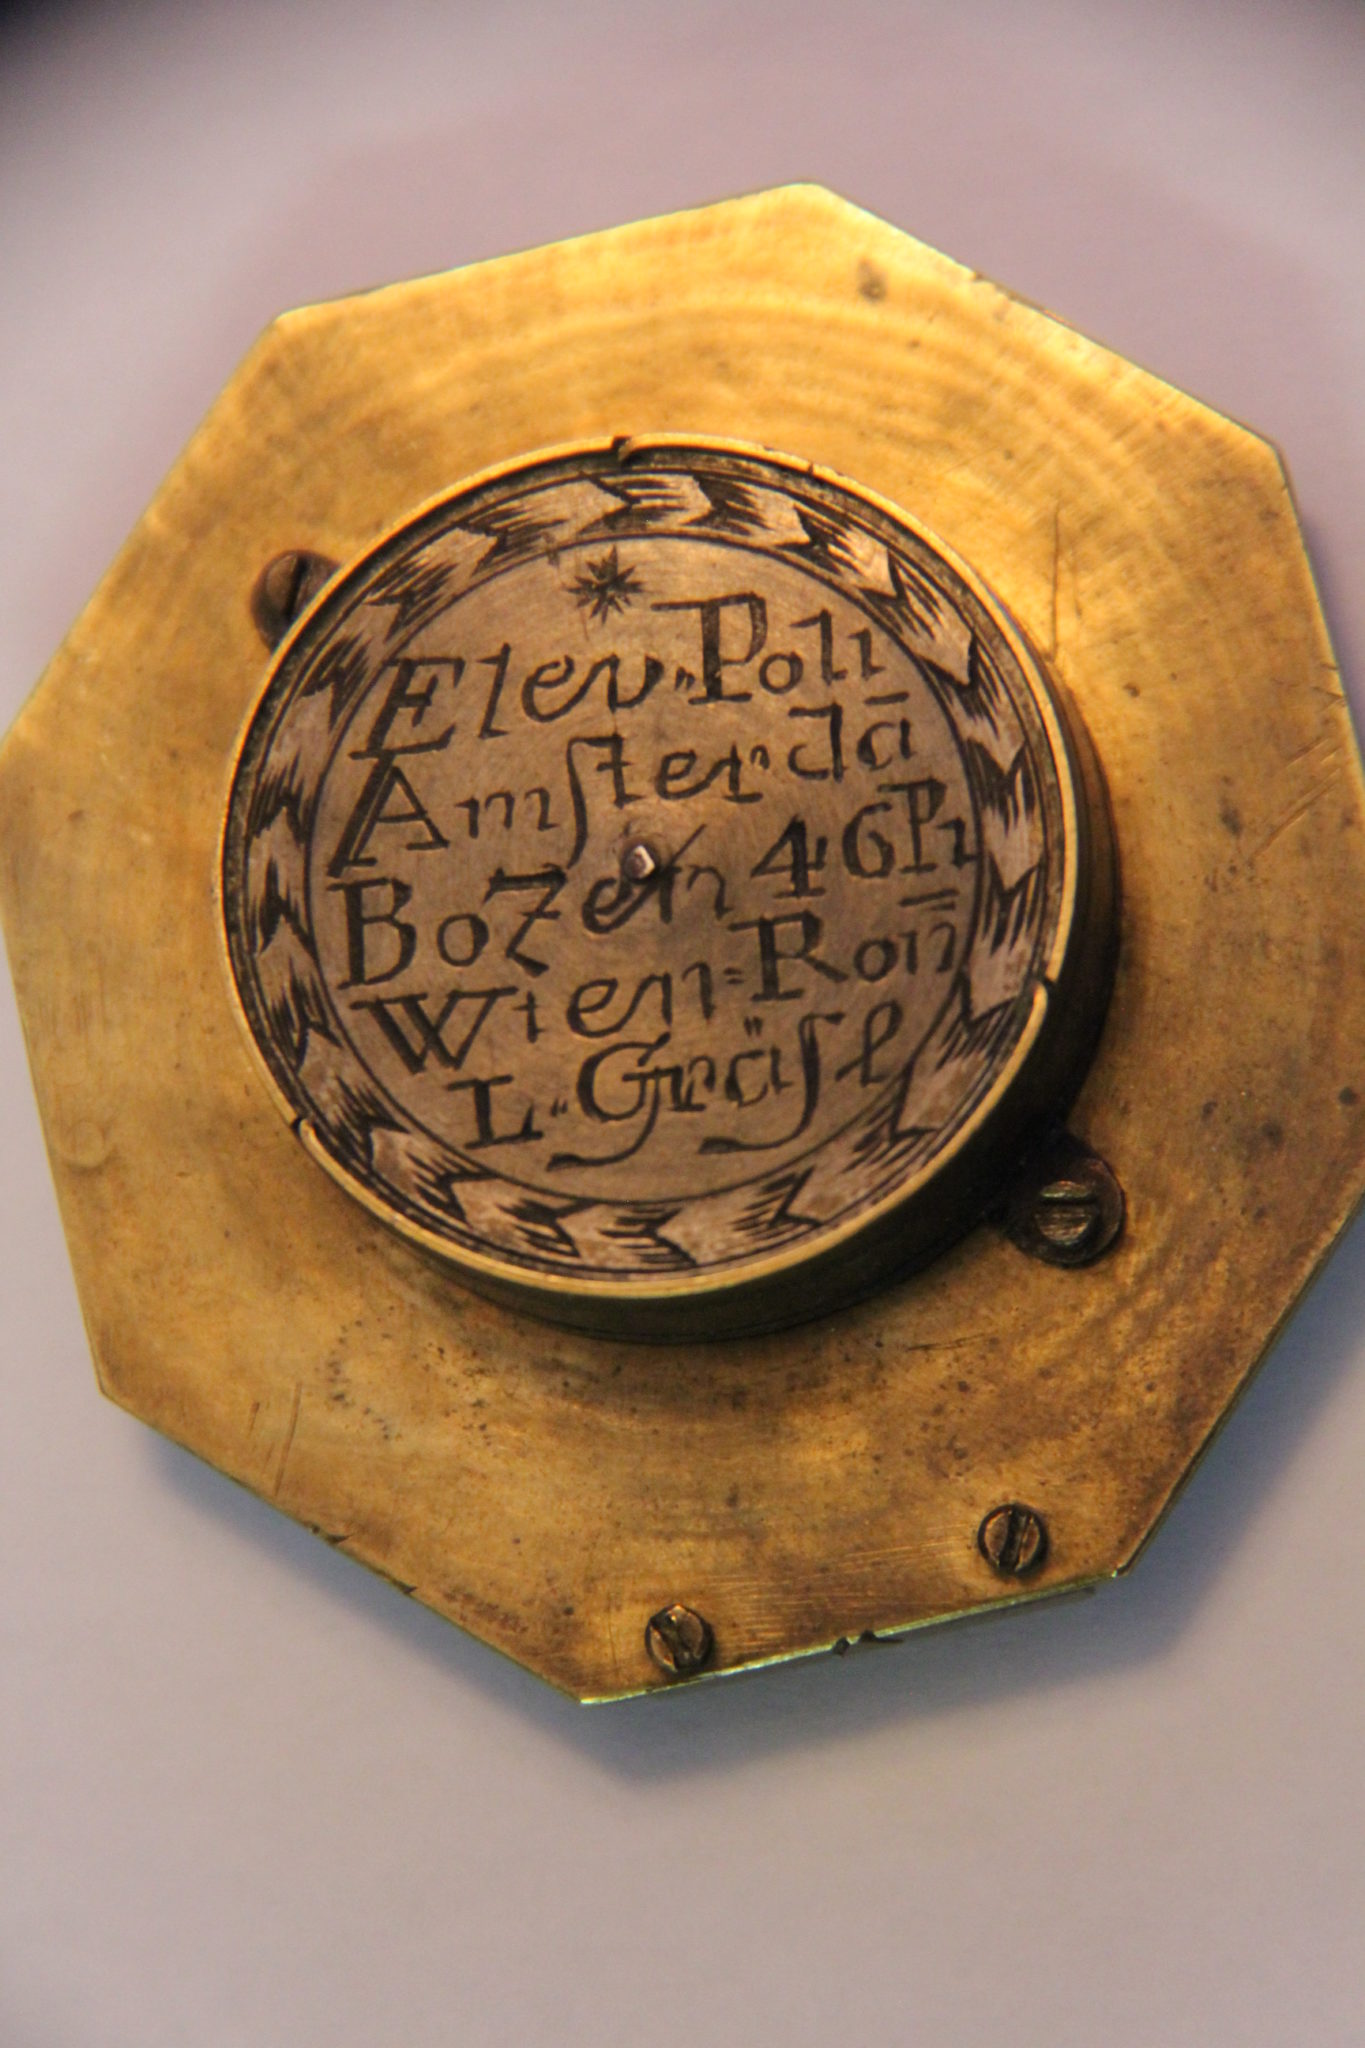 Elev Poli
Amſterdā
Bozen 46
Wien Ron̄
L Gräſl